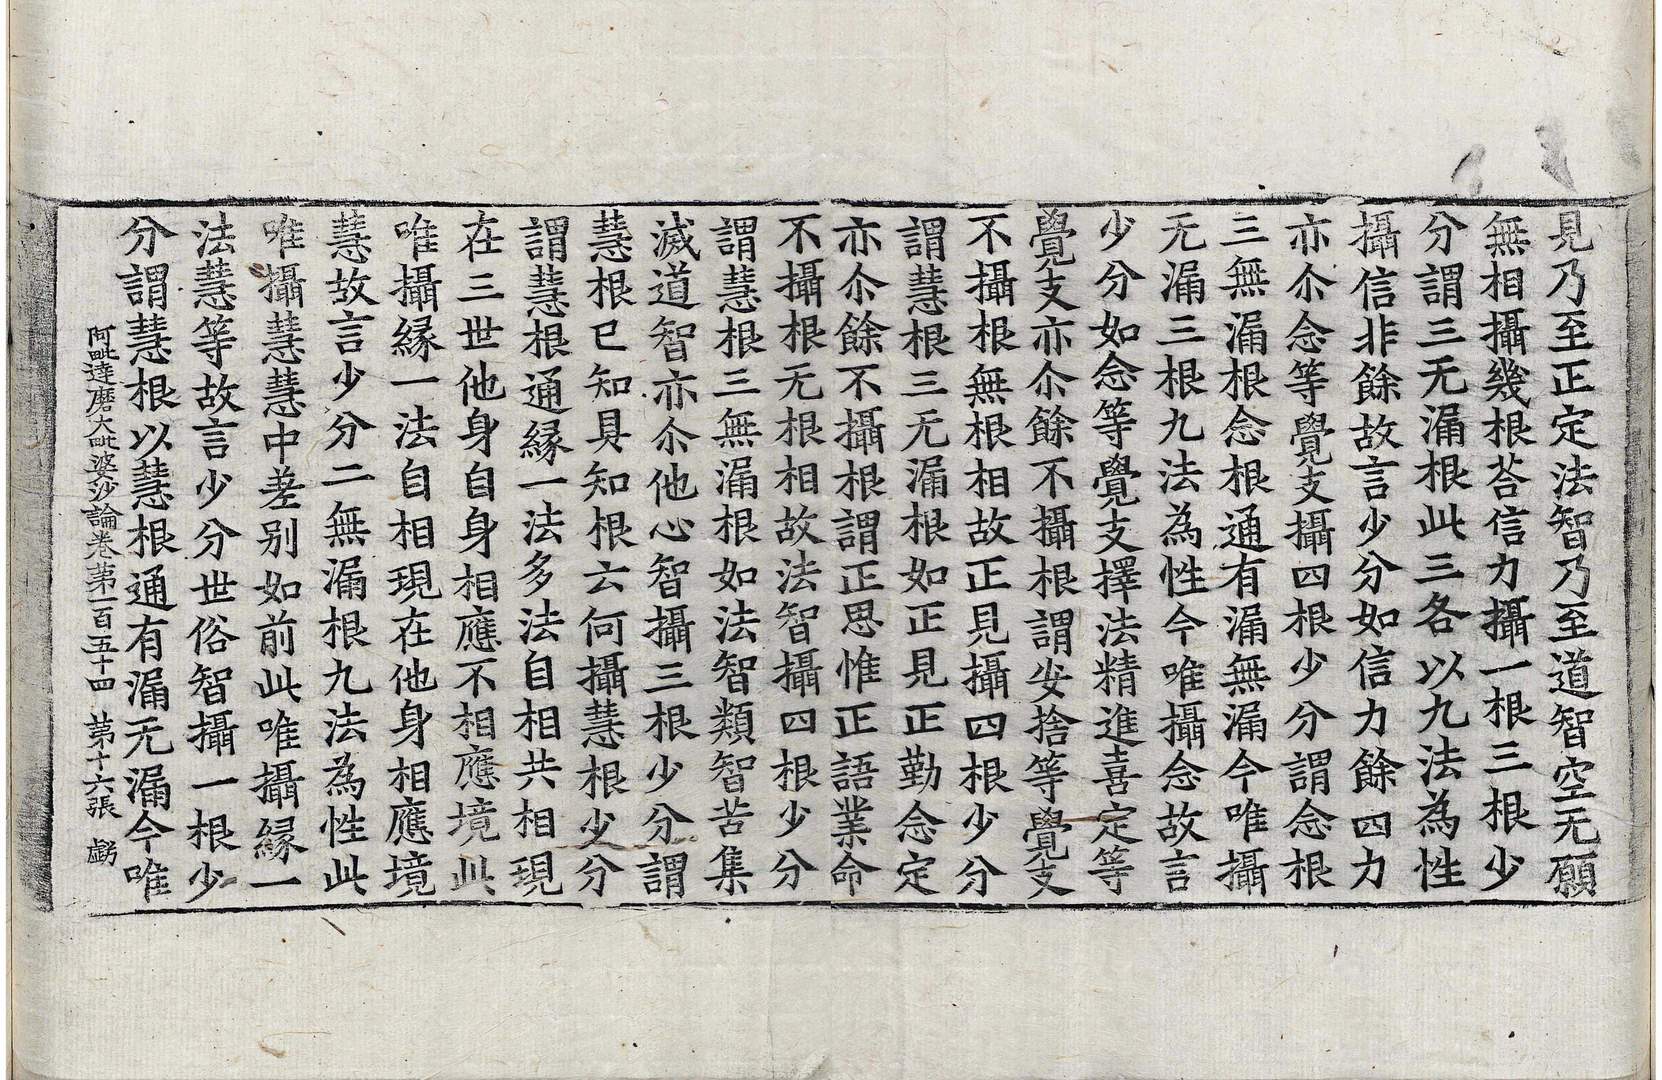 見乃至正定法智乃至道智空无願
無相攝幾根荅信力攝一根三根少
分謂三无漏根此三各以九法為性
攝信非餘故言少分如信力餘四力
亦尒念等覺支攝四根少分謂念根
三無漏根念根通有漏無漏今唯攝
无漏三根九法為性今唯攝念故言
少分如念等覺支擇法精進喜定等
覺支亦尒餘不攝根謂安捨等覺支
不攝根無根相故正見攝四根少分
謂慧根三无漏根如正見正勤念定
亦尒餘不攝根謂正思惟正語業命
不攝根无根相故法智攝四根少分
謂慧根三無漏根如法智類智苦集
滅道智亦尒他心智攝三根少分謂
慧根已知具知根云何攝慧根少分
謂慧根通緣一法多法自相共相現
在三世他身自身相應不相應境此
唯攝緣一法自相現在他身相應境
慧故言少分二無漏根九法為性此
唯攝慧慧中差別如前此唯攝緣一
法慧等故言少分世俗智攝一根少
分謂慧根以慧根通有漏无漏今唯
阿毗達磨大毗婆沙論卷第一百五十四 第十六張 虧